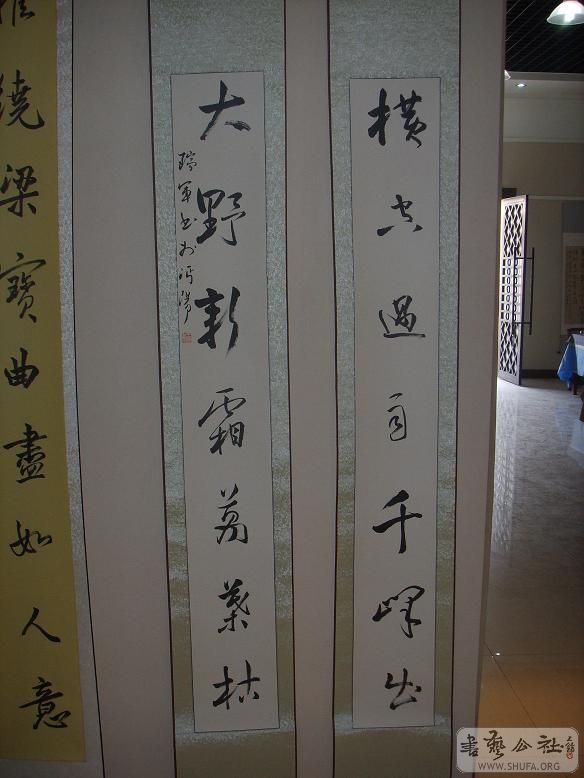 橫空過雨千峰出
大野新霜萬葉枯
瑞軍書於
繞梁寶曲盡如人意
書藝公社
WWW.SHUFA.ORG